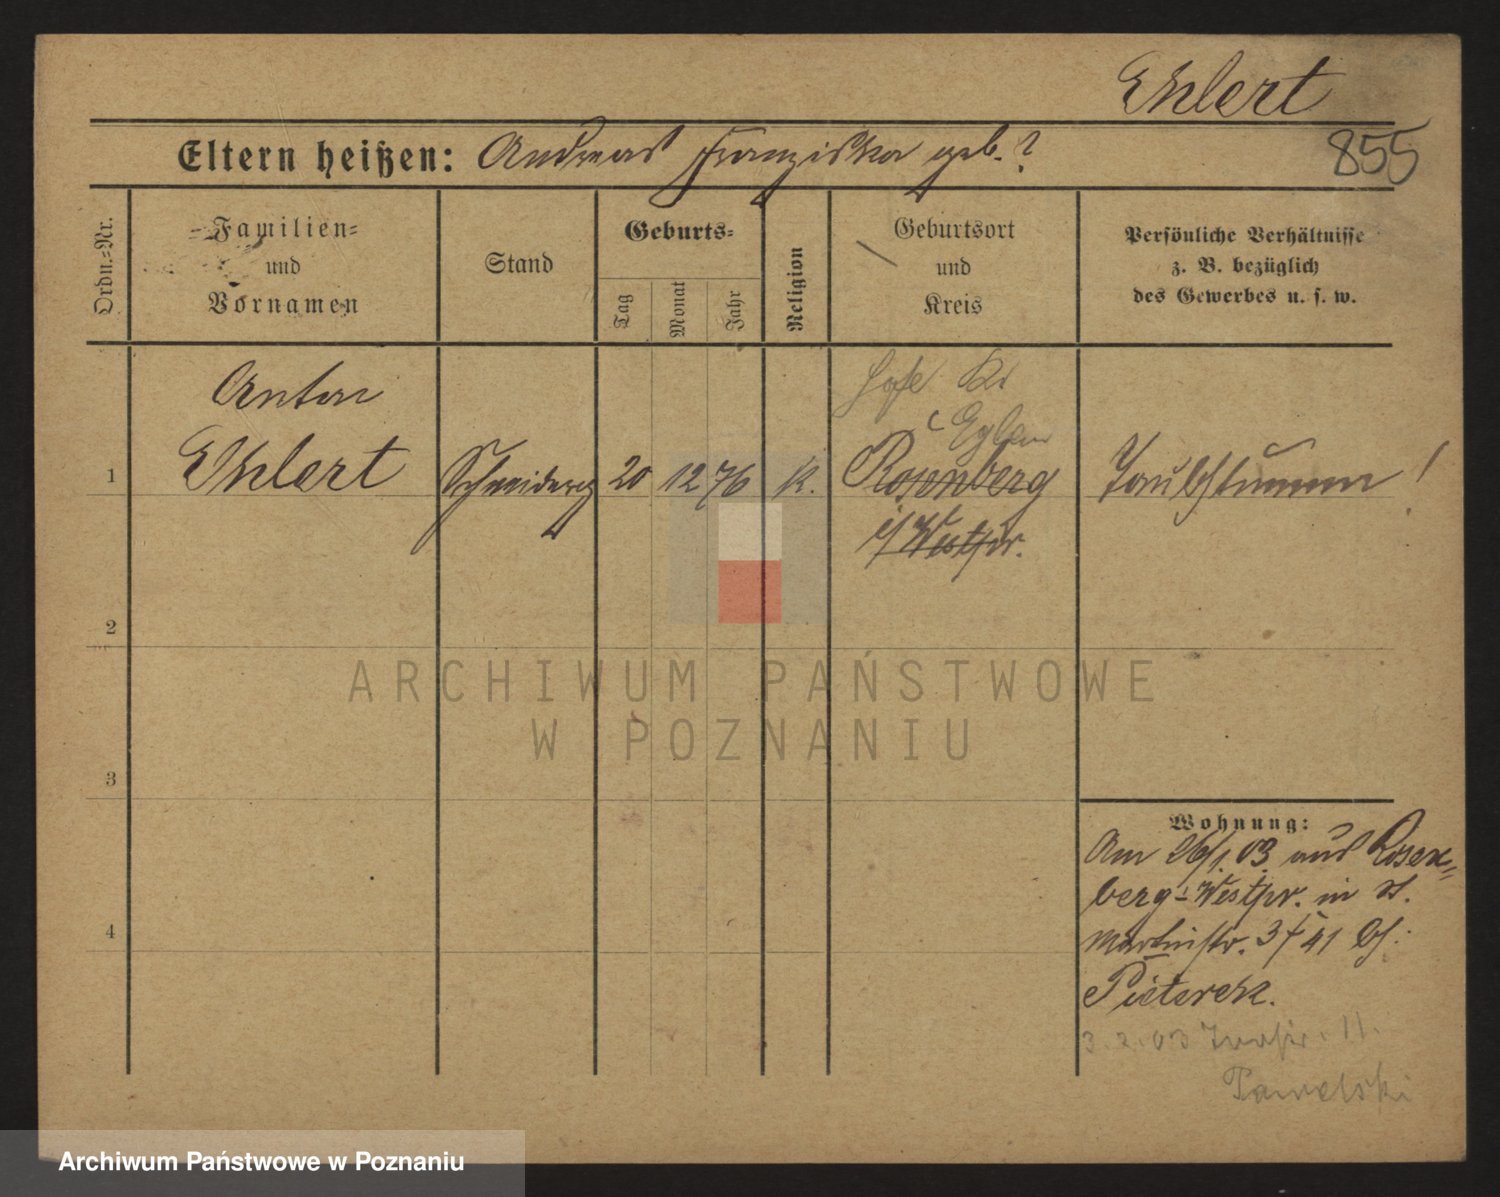 Ehlert
855
Eltern heißen: Andreas Franziska geb. ?
Ordn.-Nr.
Familien-
und
Vornamen
Stand
Geburts-
Tag
Monat
Jahr
Religion
Geburtsort
und
Kreis
Persönliche Verhältnisse
z. B. bezüglich
des Gewerbes u. s. w.
Anton
Kr
1 Ehlert Schneiderg 20 12 76 K. Rosenberg Taubstumm !
i/Westpr.
2
ARCHIWUM PAŃSTWOWE
W POZNANIU
3
Wohnung:
Am 26/1.03 aus Rosen=
berg-Westpr. in St.
4
Martinstr. 41 bs:
Pieterek.
3.2.03 11.
Pawelski
Archiwum Państwowe w Poznaniu